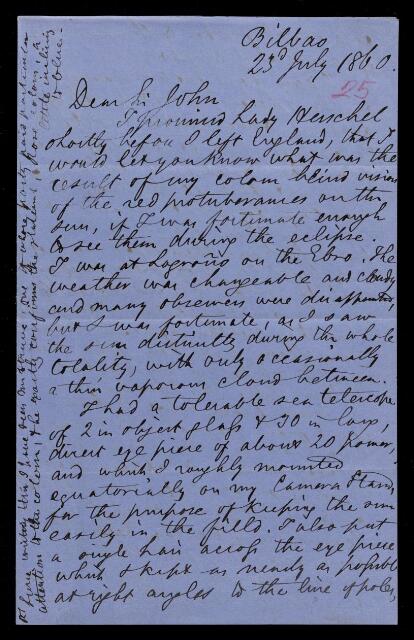 Bilbao
23d July 1860.
25
Dear Sir John
I promised Lady Herschel
shortly before I left England, that I
would let you know what was the
result of my colour blind vision
of the red protuberances on the
sun, if I was fortunate enough
to see them during the eclipse.
I was at Logroño on the Ebro. The
weather was changeable and cloudy
and many observers were disappointed,
but I was fortunate, as I saw
the sun distinctly during the whole
totality, with only occasionally
a thin vaporous cloud between.
I had a tolerable sea telescope
of 2 in object glass & 30 in long,
direct eye piece of about 20 power,
and which I roughly mounted
equatorially on my Camera Stand
for the purpose of keeping the sun
easily in the field. I also put
a single hair across the eye piece
which I kept as nearly as possible
at right angles to the line of poles,
P.S. Since writing this I have seen
attention to the colour, & he exactly confirms the statement